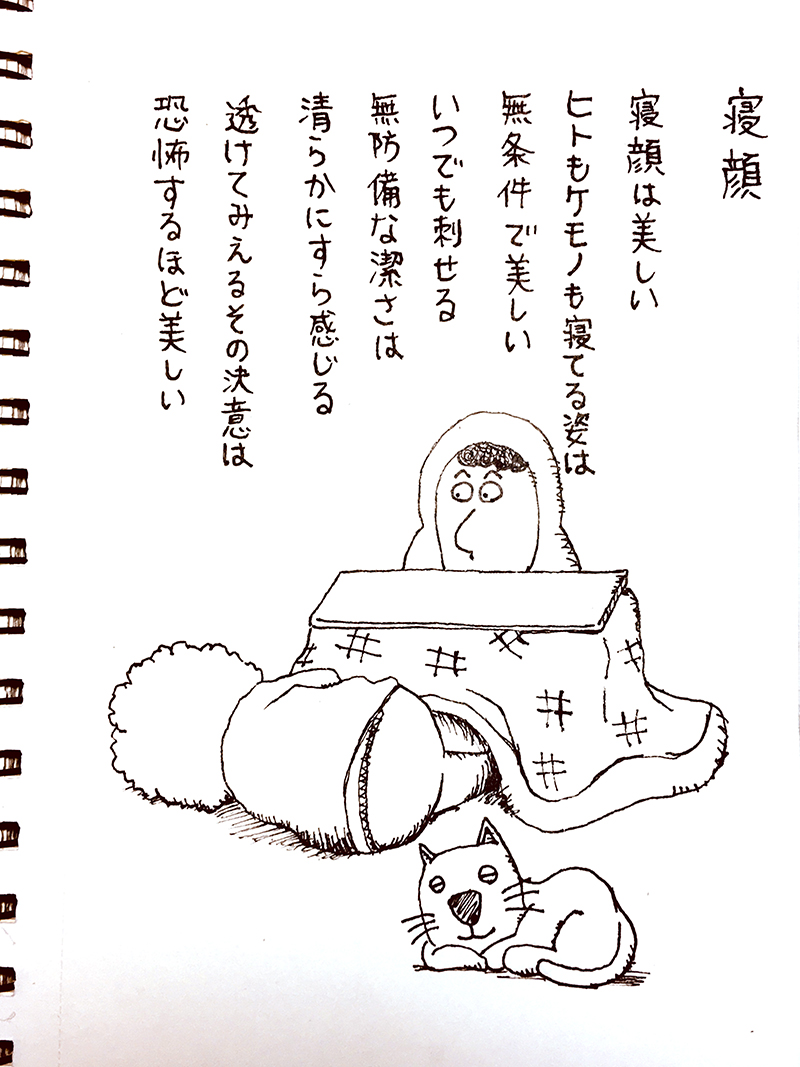 寝顔
寝顔は美しい
ヒトもケモノも寝てる姿は
無条件で美しい
いつでも刺せる
無防備な潔さは
清らかにすら感じる
透けてみえるその決意は
恐怖するほど美しい